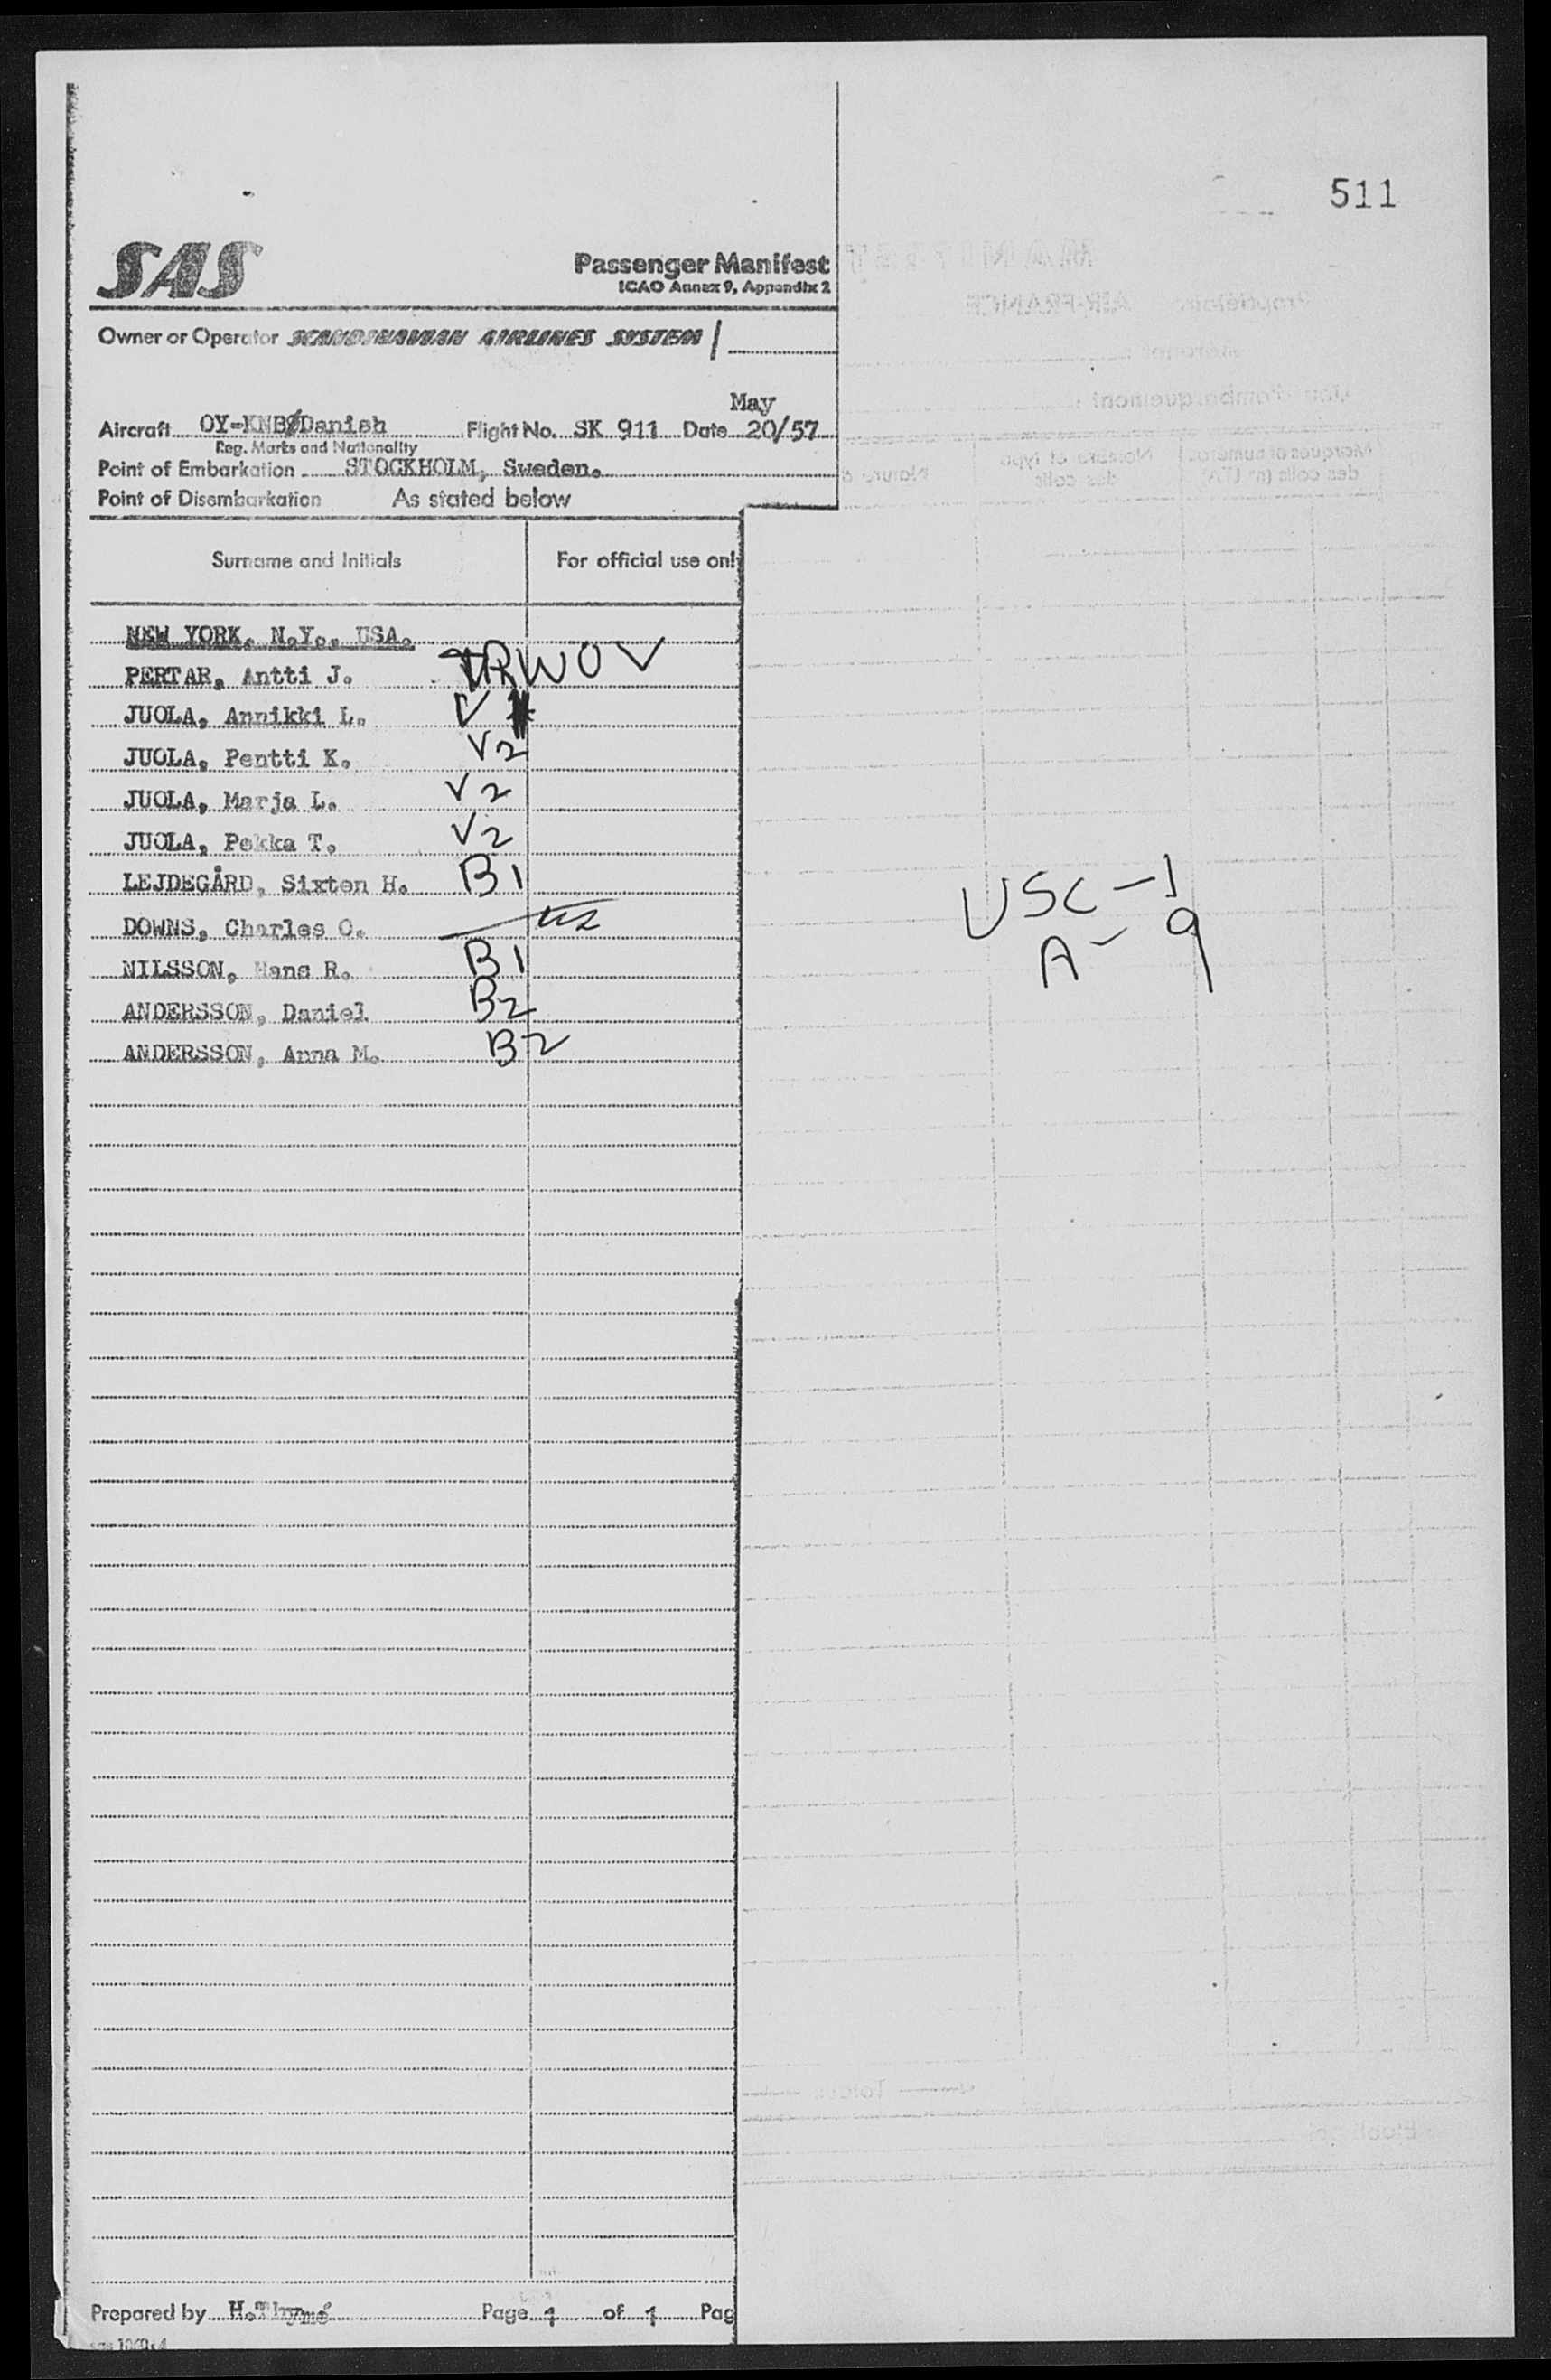 511
SAS
Passenger Manifest
ICAO Annex 9, Appendix 2
Owner or Operator SCANDINAVIAN AIRLINES SYSTEM
May
Aircraft OY-KNB/Danish Flight No. SK 911 Date 20/57
Reg. Marks and Nationality
Point of Embarkation STOCKHOLM, Sweden.
Point of Disembarkation As stated below
Surname and Initials For official use onl
NEW YORK, N.Y., USA.
PERTAR, Antti J. RWOV
JUOLA, Annikki L. V
JUOLA, Pentti K. V2
JUOLA, Marja L. V2
JUOLA, Pekka T. V2
LEJDEGÅRD, Sixten H. B1
DOWNS, Charles O. us
NILSSON, Hans R. B1
ANDERSSON, Daniel B2
ANDERSSON, Anna M. B2
USC-1
A-9
Prepared by H. Page 1 of 1 Pag